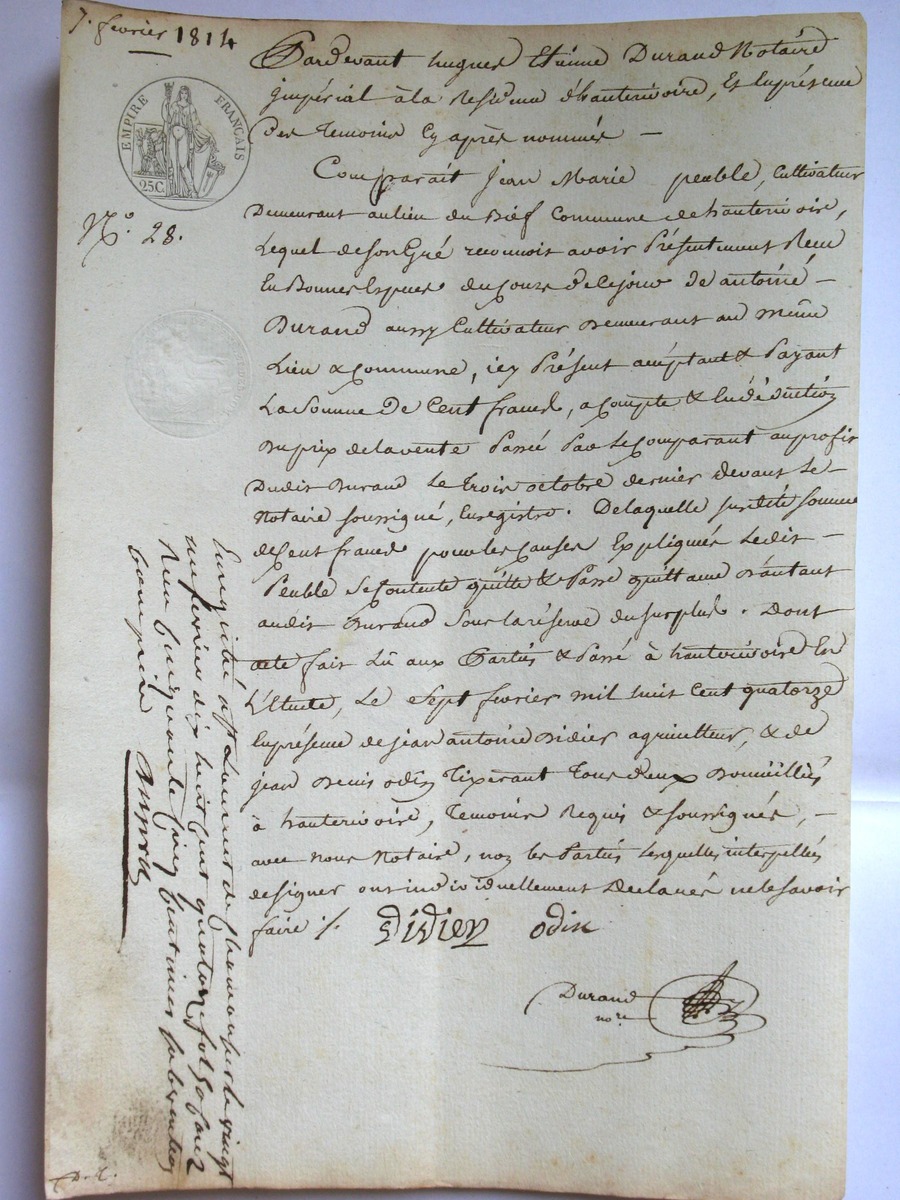 7. fevrier 1814
EMPIRE FRANÇAIS
25C.
N.º 28.
Pardevant hugues Etienne Durand Notaire
jmpérial à la Residence d'hauterivoire, Et Enprésence
Des Temoins Cy après nommés —
Comparait jean Marie peuble, Cultivateur
Demeurant aulieu du Bief Commune de hauterivoire,
Lequel deson Gré reconnoit avoir Présentement Recu
En Bonnes Espèces du Cours de Cejour de antoine —
Durand aussy Cultivateur Demeurant au même
Lieu & Commune, icy Présent acceptant & Payant
La Somme De Cent francs, acompte & En déduction
Du prix de la vente Passée Par Le Comparant au profit
Dudit Durand Le Trois octobre dernier devant Le —
Notaire soussigné, Enregistrée. De laquelle susdite somme
de Cent francs pour les Causes Expliquées Ledit —
Peuble se Contente quitte & Passe quittance D'autant
audit Durand sous la réserve du surplus. Dont
acte fait Lû aux Parties & Passé à hauterivoire En
L'Etude, Le Sept fevrier mil huit Cent quatorze
En présence de jean antoine Didier agriculteur, & de
jean Denis odin Tixerant Tous deux Domiciliés
à hauterivoire, Temoins Requis & soussignés, —
avec Nous Notaire, non les Parties Lesquelles interpellées
de signer ont individuellement Declarés ne le savoir
faire ./.
Didier odin
Durand
no.re
Enregistré à St Laurent de Chamousset le vingt
un fevrier dix huit Cent quatorze fol. 50
Recu Cinquante Cinq Centimes subvention
Comprise